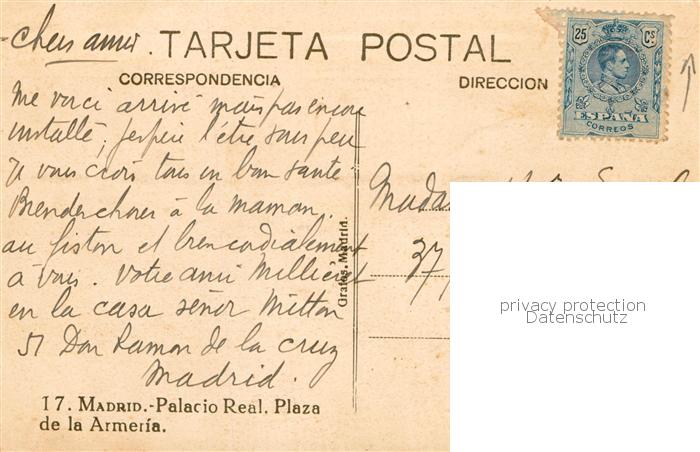 chers amis.
TARJETA POSTAL
CORRESPONDENCIA
DIRECCION
25 Cs
ESPAÑA
CORREOS
Me voici arrivé mais pas encore
installé, j'espère l'être sous peu
Je vous crois tous en bonne santé
à la maman,
au fiston et bien cordialement
à vous. Votre ami
en la casa señor Mitton
51 Don Ramon de la cruz
Madrid.
37
Grafos. Madrid.
17. MADRID.-Palacio Real. Plaza
de la Armería.
privacy protection
Datenschutz